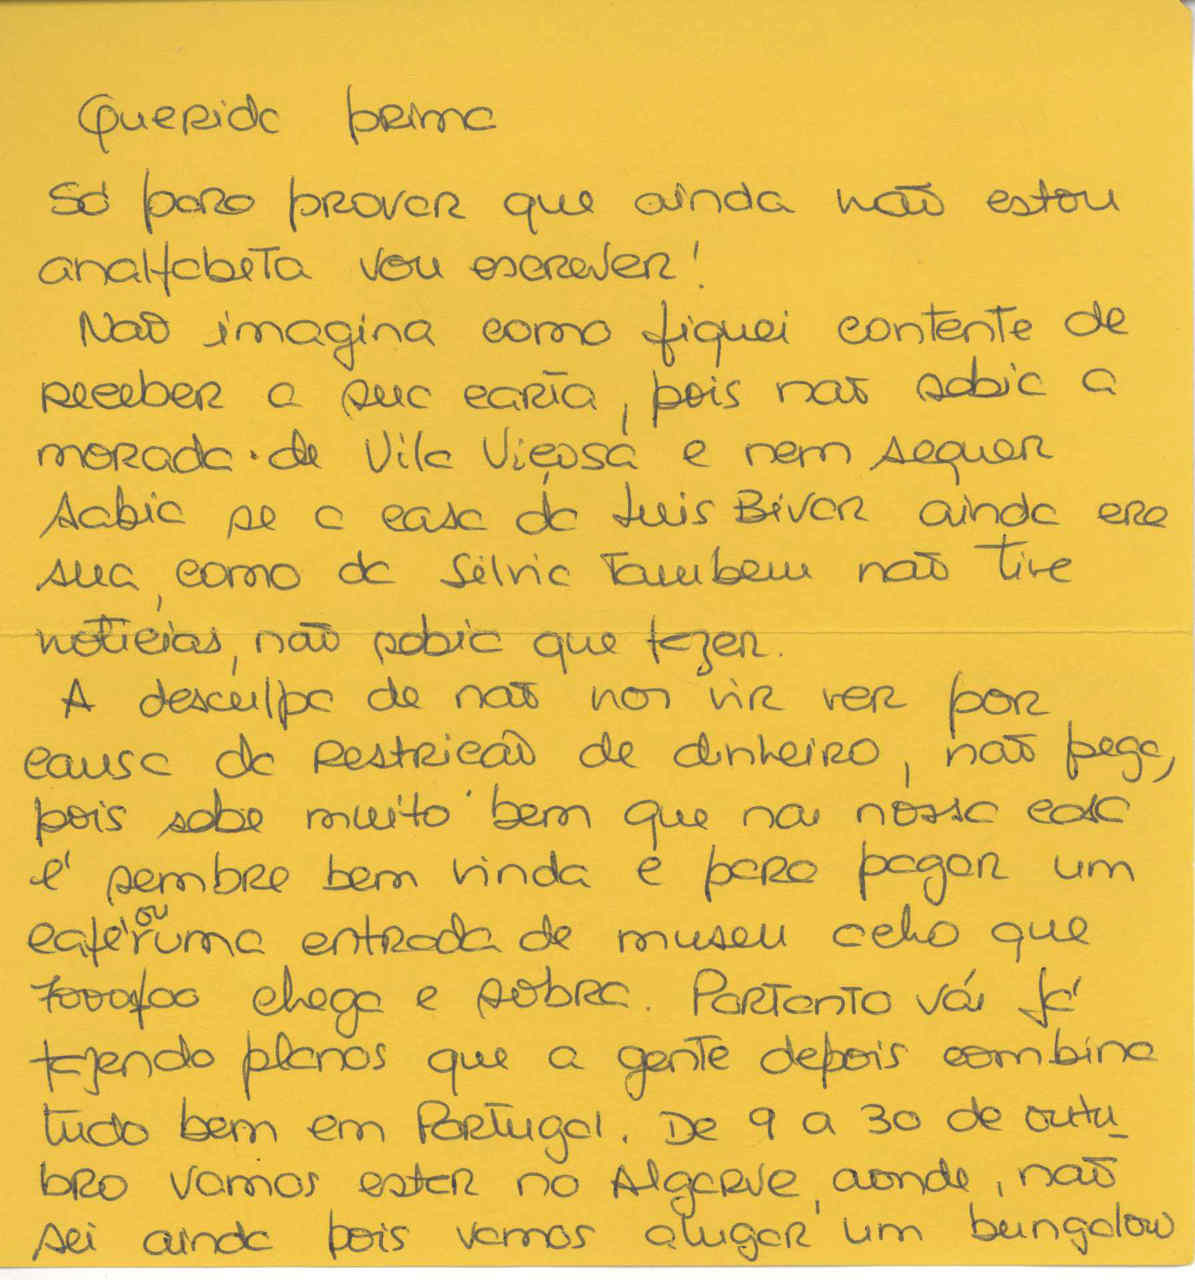 Querida prima
Só para provar que ainda não estou
analfabeta vou escrever!
Não imagina como fiquei contente de
receber a sua carta, pois não sabia a
morada de Vila Viçosa e nem sequer
sabia se a casa da Luis Bivar ainda era
sua, como da Silvia tambem não tive
notícias, não sabia que fazer.
A desculpa de não nos vir ver por
causa da restrição de dinheiro, não pega,
pois sabe muito bem que na nossa casa
é sembre bem vinda e para pagar um
café ou uma entrada de museu acho que
7000$00 chega e sobra. Portanto vá já
fazendo planos que a gente depois combina
tudo bem em Portugal. De 9 a 30 de outu_
bro vamos estar no Algarve, aonde, não
sei ainda pois vamos alugar um bungalow